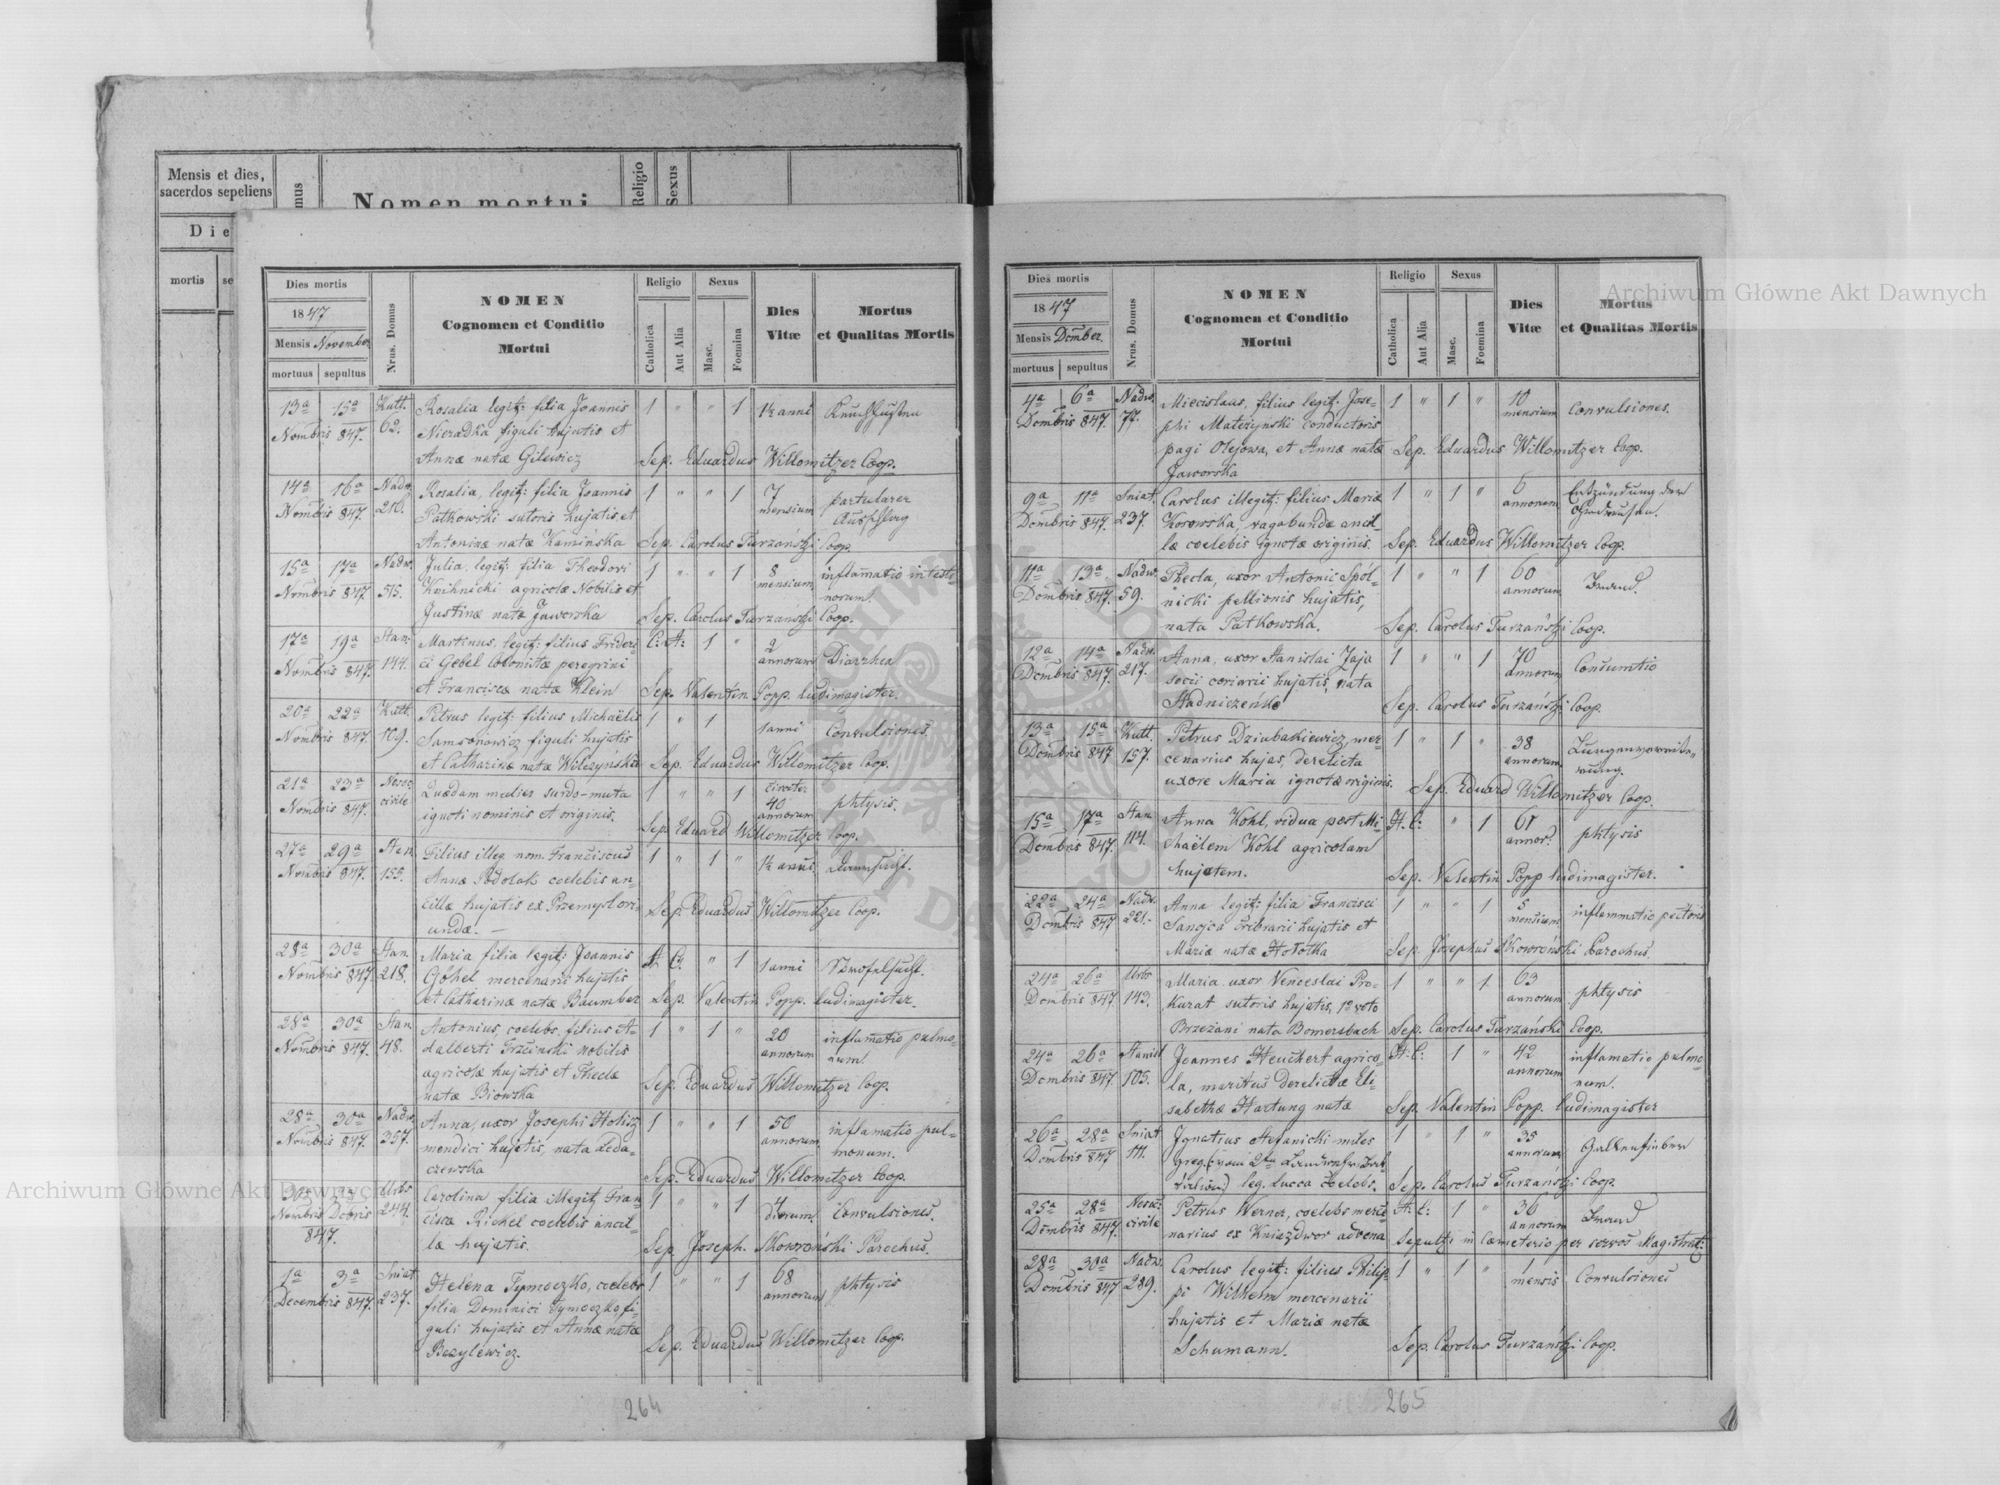 Mensis et dies,
sacerdos sepeliens
Nomen mortui
Religio
Sexus
Die
mortis
se
Dies mortis
1847
Mensis November
mortuus sepultus
Nrus. Domus
NOMEN
Cognomen et Conditio
Mortui
Religio
Catholica
Aut Alia
Sexus
Masc.
Foemina
Dies
Vitæ
Mortus
et Qualitas Mortis
13a 15a Kutt. Rosalia legit: filia Joannis 1 " " 1 1½ anni
Nombris 847. 62. Nieradka figuli hujatis et
Annæ natæ Gilewicz Sep. Eduardus Willomitzer Coop.
14a 16a Nadw. Rosalia, legit: filia Joannis 1 " " 1 7
Nombris 847. 210. Patkowski sutoris hujatis et mensium
Antoninæ natæ Kaminska Sep. Carolus Turzański Coop.
15a 17a Nadw. Julia legit: filia Theodori 1 " " 1 8 inflamatio intesti
Nombris 847. 515. Kuchnicki agricolæ Nobilis et mensium norum.
Justinæ natæ Jaworska Sep. Carolus Turzański Coop.
17a 19a Stan. Martinus, legit: filius Frideri- C: A: 1 " 2 Diarrhea
Nombris 847. 144. ci Gebel Colonitæ peregrini annorum
et Franciscæ natæ Klein Sep. Valentin Popp. ludimagister.
20a 22a Kutt. Petrus legit: filius Michaëlis 1 " 1 1 anni Convulsiones.
Nombris 847. 109. Samsonowicz figuli hujatis
et Catharinæ natæ Wilczyńska Sep. Eduardus Willomitzer Coop.
21a 23a Nosoc: Quædam mulier surdo-muta 1 " " 1 circiter phtysis
Nombris 847. civile ignoti nominis et originis. 40 annorum
Sep. Eduard Willomitzer Coop.
27a 29a Stan. Filius illeg. nom. Franciscus 1 " 1 "
Nombris 847. 155. Annæ Podolak coelebis an-
cillæ hujatis ex Przemysl ori- Sep. Eduardus Willomitzer Coop.
undæ. —
28a 30a Stan. Maria filia legit: Joannis A. C. " 1 1 anni
Nombris 847 218. Göhel mercenarii hujatis
et Catherinæ natæ Baumber Sep. Valentin Popp. ludimagister.
28a 30a Stan. Antonius, coelebs, filius A- 1 " 1 " 20 inflamatio pulmo-
Nombris 847. 48. dalberti nobilis annorum num.
agricolæ hujatis et Theclæ Sep. Eduardus Willomitzer Coop.
natæ
28a 30a Nadw. Anna, uxor Josephi 1 " " 1 50 inflamatio pul-
Nombris 847. 357. mendici hujatis, nata Leda- annorum monum.
czewska Sep. Eduardus Willomitzer Coop.
30a 2a Urbs Carolina filia illegit: Fran- 1 " " 1 4 Convulsiones.
Nombris Dcbris 244. ciscæ Rickel coelebis ancil- dierum.
847. læ hujatis. Sep. Joseph. Skowroński Parochus.
1a 3a Sniat. Helena Tymoczko, coelebs 1 " " 1 68 phtysis
Decembris 847. 237. filia Dominici Tymoczko fi- annorum
guli hujatis et Annæ natæ Sep. Eduardus Willomitzer Coop.
Bazylewicz.
264
Dies mortis
1847
Mensis Dcmber.
mortuus sepultus
Nrus. Domus
NOMEN
Cognomen et Conditio
Mortui
Religio
Catholica
Aut Alia
Sexus
Masc.
Foemina
Dies
Vitæ
Mortus
et Qualitas Mortis
4a 6a Nadw. Miecislaus, filius legit: Jose- 1 " 1 " 10 Convulsiones.
Dcmbris 847. 77. phi Matczynski conductoris mensium
pagi Olejowa, et Annæ natæ Sep. Eduardus Willomitzer Coop.
Jaworska
9a 11a Sniat. Carolus illegit: filius Mariæ 1 " 1 " 6 Entzündung der
Dcmbris 847. 237. Korowska, vagabundæ ancil- annorum
læ coelebis ignotæ originis. Sep. Eduardus Willomitzer Coop.
11a 13a Nadw. Thecla, uxor Antonii Spól- 1 " " 1 60 Brand.
Dcmbris 847. 59. nicki pellionis hujatis, annorum
nata Patkowska. Sep. Carolus Turzański Coop.
12a 14a Nadw. Anna, uxor Stanislai Jaja 1 " " 1 70 Consumtio
Dcmbris 847. 217. socii coriarii hujatis, nata annorum
Stadniczeńko Sep. Carolus Turzański Coop.
13a 15a Kutt. Petrus Dziubakiewicz, mer- 1 " 1 " 38
Dcmbris 847 157. cenarius hujas, derelicta annorum
uxore Maria ignotæ originis. Sep. Eduard Willomitzer Coop.
15a 17a Stan. Anna Kohl, vidua post Mi- A. C: " 1 61 phtysis
Dcmbris 847. 114. chaëlem Kohl agricolam annor:
hujatem. Sep. Valentin Popp ludimagister.
22a 24a Nadw. Anna legit: filia Francisci 1 " " 1 5 inflammatio pectoris
Dcmbris 847 221. Sanojca cribrarii hujatis et mensium
Mariæ natæ Hołotka Sep. Josephus Skowroński Parochus.
24a 26a Urbs Maria uxor Venceslai Pro- 1 " " 1 63 phtysis
Dcmbris 847 142. kurat sutoris hujatis, 1o voto annorum
Brzezani nata Bomersbach Sep. Carolus Turzański Coop.
24a 26a Stanisl Joannes Heuchert agrico- A: C: 1 " 42 inflamatio pulmo
Dcmbris 847. 105. la, maritus derelictæ Eli- annorum num.
sabethæ Hartung natæ Sep. Valentin Popp. ludimagister
26a 28a Sniat Ignatius Stefanicki miles 1 " 1 " 35 Gallenfieber
Dcmbris 847 111. annorum
leg. Lucca Coelebs. Sep. Carolus Turzański Coop.
25a 28a Nosoc: Petrus Werner, coelebs merce A: C: 1 " 36 Brand
Dcmbris 847. civile narius ex Kniazdwor advena annorum
Sepult: in Cæmeterio per servos Magistrat:
28a 30a Nadw. Carolus legit: filius Philip 1 " 1 " 1 Convulsiones
Dcmbris 847 289. pi Wilhelm mercenarii mensis
hujatis et Mariæ natæ
Schumann. Sep. Carolus Turzański Coop.
265
Archiwum Główne Akt Dawnych
Archiwum Główne Akt Dawnych